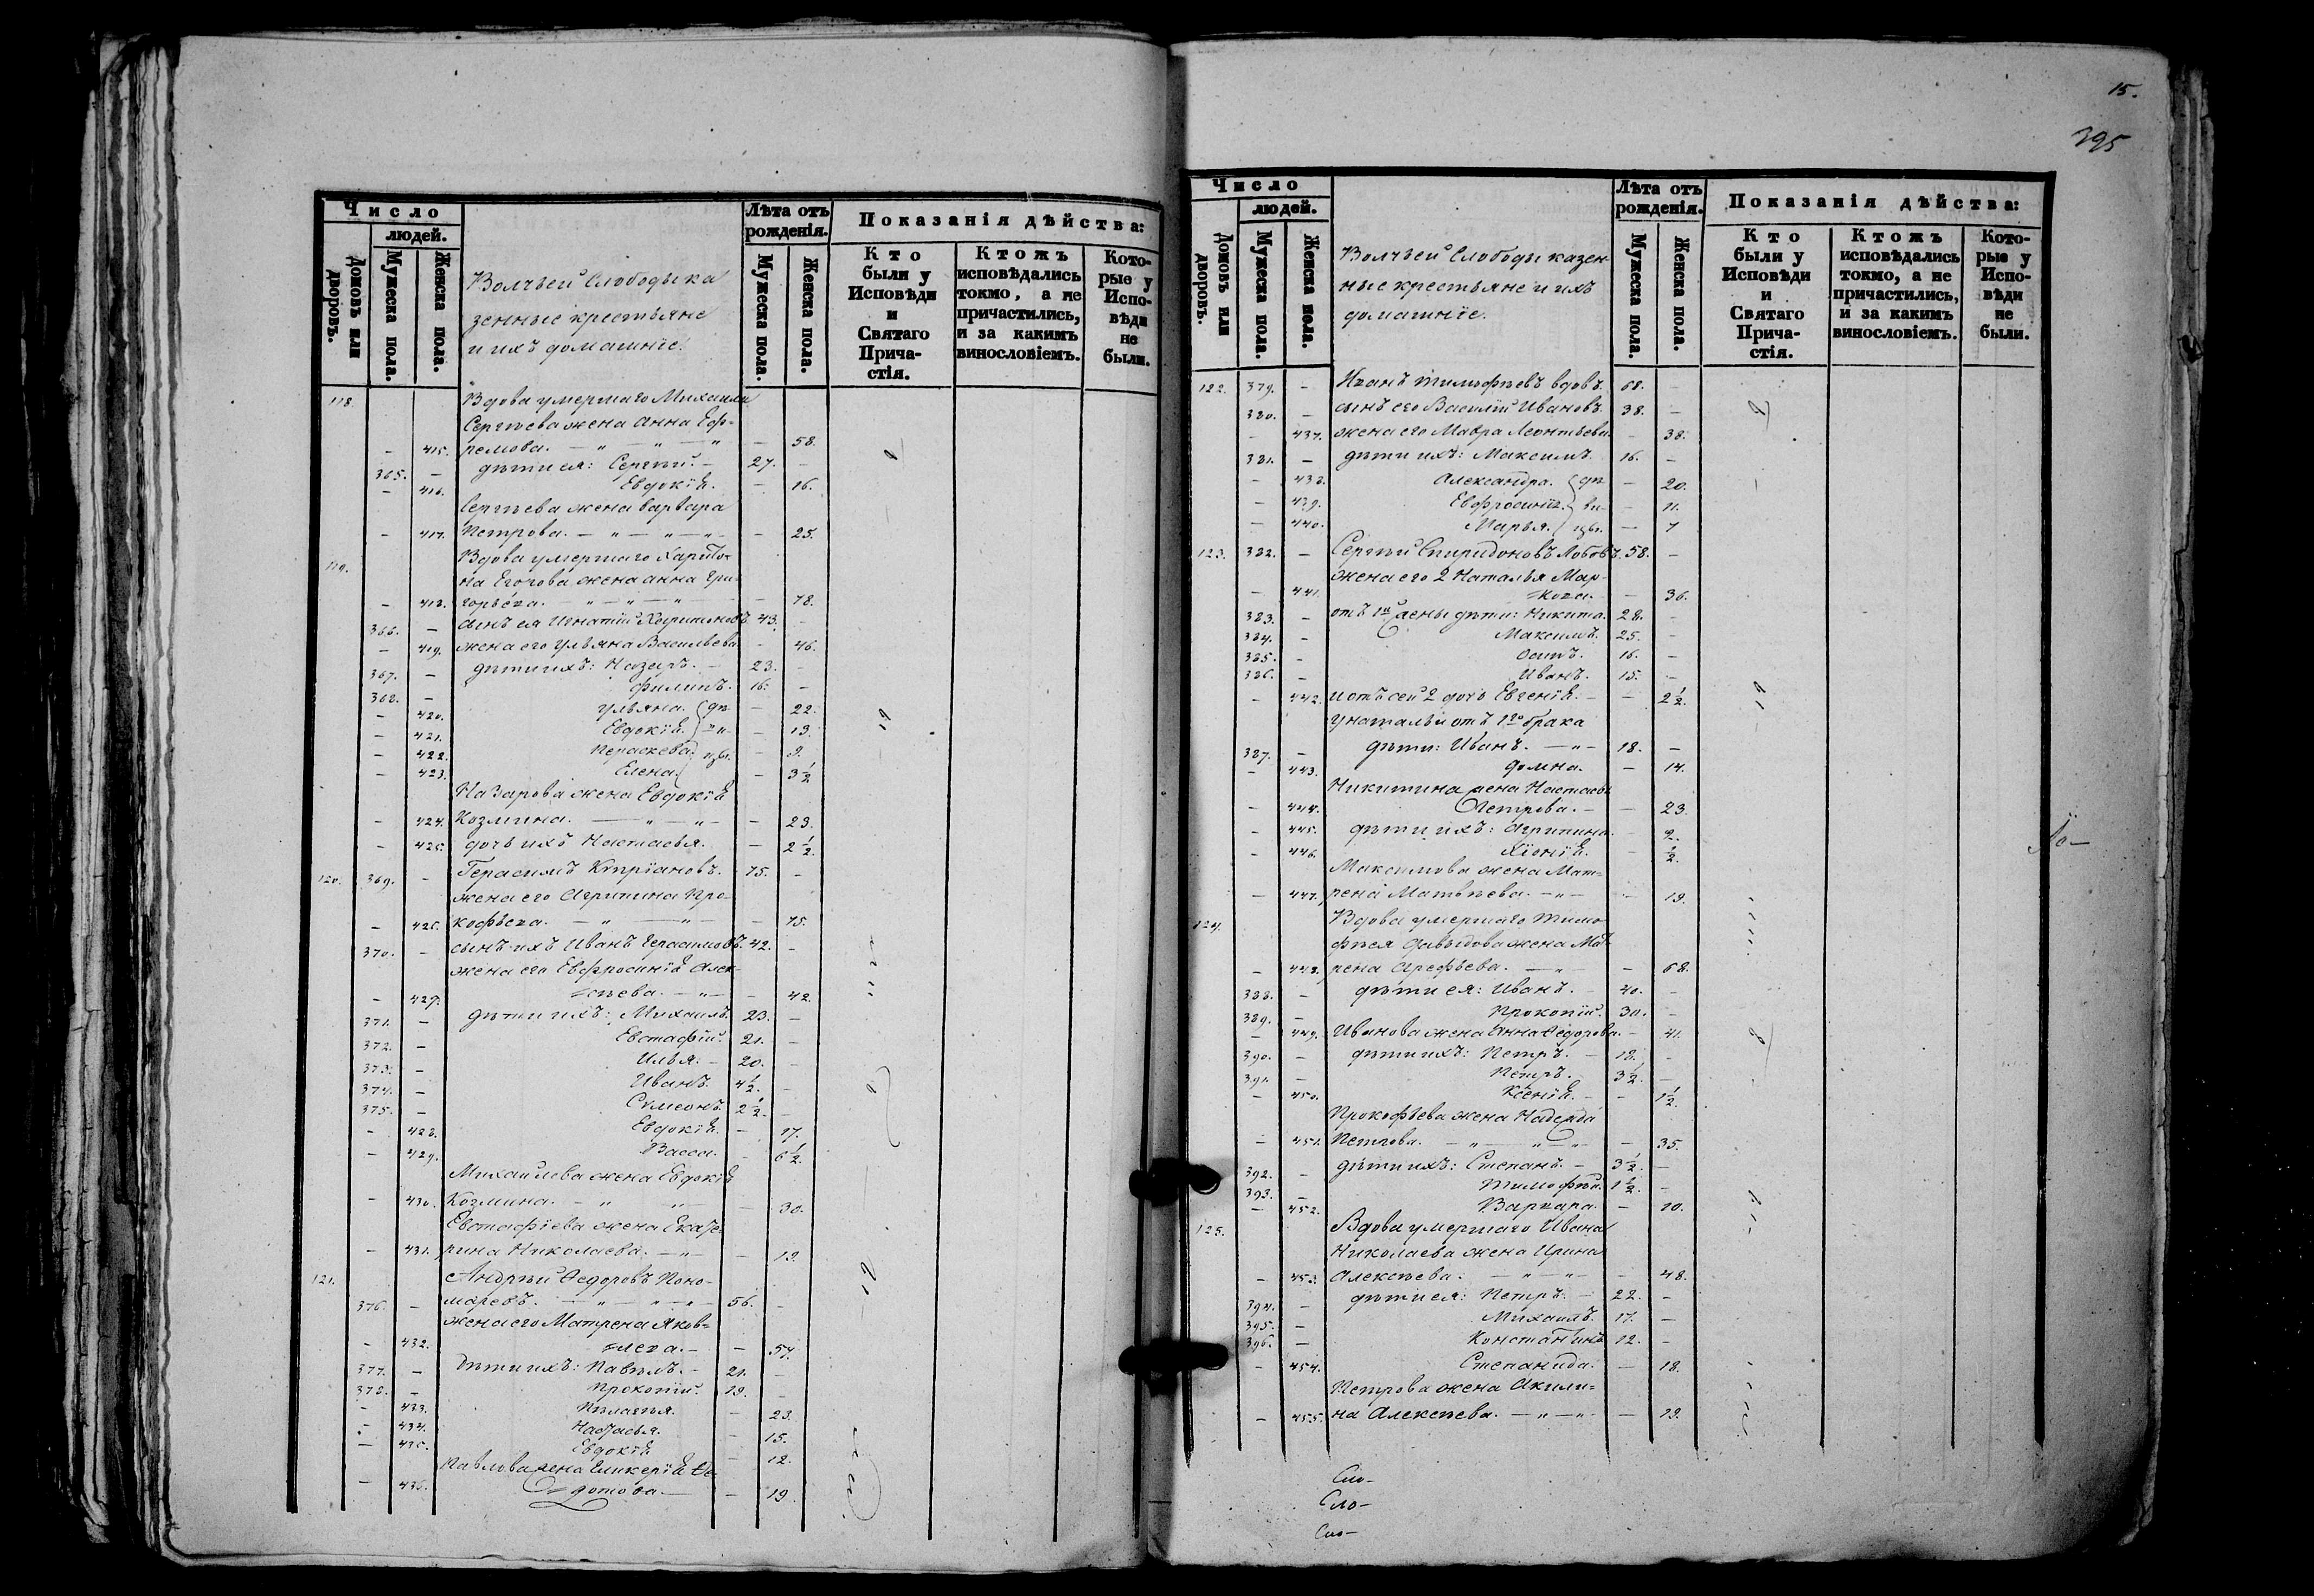 Число
людей.
Домовъ или дворовъ.
Мужеска пола.
Женска пола.
Волчьей Слободы ка
зенные крестьяне
и ихъ домашніе.
Лѣта отъ рожденія.
Мужеска пола.
Женска пола.
Показанія дѣйства:
Кто были у Исповѣди и Святаго Прича- стія.
Ктожъ исповѣдались токмо, а не причастились, и за какимъ винословіемъ.
Кото- рые у Испо- вѣди не были.
118. Вдова умершаго Михаила
Сергѣева жена Анна Еф-
– 415. ремова. – „ – „ – „ – 58.
365. – дѣти ея: Сергѣй. – 27. –
– 416. Евдокія. – 16.
Сергѣева жена Варвара
– 417. Петрова. – „ – „ – „ – – 25.
119. Вдова умершаго Харито-
на Егорова жена Анна Гри-
– 418. горьева. – „ – „ – „ – – 78.
366. – сынъ ея Игнатій Харитоновъ 43. –
– 419. жена его Ульяна Васильева – 46.
367. – дѣти ихъ: Назаръ. – 23. –
368. – Филипъ. 16. –
– 420. Ульяна. дѣ – 22.
– 421. Евдокія. ви- – 19.
– 422. Параскева. цы. – 9.
– 423. Елена. – 3 1/2
Назарова жена Евдокія
– 424. Козмина. – „ – „ – – 23.
– 425. дочь ихъ Настасья. – 2 1/2.
120. 369. – Герасимъ Кипріановъ. 75. –
жена его Агрипина Про-
– 426. кофьева. – „ – „ – – 75.
370. – сынъ ихъ Иванъ Герасимовъ. 42. –
жена его Евфросинія Алек-
– 427. сѣева. – „ – – 42.
371. – дѣти ихъ: Михаилъ. 23. –
372. – Евстафій. 21. –
373. – Илья. – 20. –
374. – Иванъ. 4 1/2. –
375. – Симеонъ. 2 1/2. –
– 428. Евдокія. – 17.
– 429. Васса. – 6 1/2.
Михайлева жена Евдокія
– 430. Козмина. – „ „ – – 30.
Евстафіева жена Екате-
– 431. рина Николаева. – „ – – 19.
121. Андрей Ѳедоровъ Поно-
376. – маревъ. – „ – „ – „ – 56. –
жена его Матрена Яков-
– 432. лева. – – 54.
377. – Дѣти ихъ: Павелъ. – 21. –
378. – Прокопій. 19. –
– 433. Пелагея. – 23.
– 434. Настасья. – 15.
– 435. Евдокія – 12.
Павлова жена Гликерія Ѳе-
– 436. дотова. – – 19.
15.
395
Число
людей.
Домовъ или дворовъ.
Мужеска пола.
Женска пола.
Волчьей Слободы казен-
ные крестьяне и ихъ
домашніе.
Лѣта отъ рожденія.
Мужеска пола.
Женска пола.
Показанія дѣйства:
Кто были у Исповѣди и Святаго Прича- стія.
Ктожъ исповѣдались токмо, а не причастились, и за какимъ винословіемъ.
Кото- рые у Испо- вѣди не были.
122. 379. – Иванъ Тимофѣевъ вдовъ. 68. –
380. – сынъ его Василій Ивановъ. 38. –
– 437. жена его Мавра Леонтьева. – 38.
381. – дѣти ихъ: Максимъ. 16. –
– 438. Александра. дѣ – 20.
– 439. Евфросинія. ви- – 11.
– 440. Марья. цы. – 7
123. 382. – Сергѣй Спиридоновъ Лобовъ. 58. –
жена его 2 Наталья Мар-
– 441. кова. – – 36.
383. – отъ 1й жены дѣти: Никита. 28. –
384. – Максимъ. 25. –
385. – Осипъ. 16. –
386. – Иванъ. 15. –
– 442. и отъ сей 2 дочь Евгенія. – – 2 1/2.
у Натальи отъ 1го брака
387. – дѣти: Иванъ. – „ – 18. –
– 443. Домна. – 14.
Никитина жена Настасья
– 444. Петрова. – – 23.
– 445. дѣти ихъ: Агрипина. – 2.
– 446. Хіонія. – 1/2.
Максимова жена Мат-
– 447. рена Матвѣева. – „ – – 19.
124. Вдова умершаго Тимо-
фѣя Давыдова жена Мат-
– 448. рена Арефьева. – „ – – 68.
388. – дѣти ея: Иванъ. – 40. –
389. – Прокопій. 30. –
– 449. Иванова жена Анна Ѳедорова. – 41.
390. – дѣти ихъ: Петръ. – 18. –
391. – Петръ. 3 1/2. –
– 450. Ксенія. – – 1 1/2.
Прокофьева жена Надежда
– 451. Петрова. – „ – „ – „ – – 35.
392. – дѣти ихъ: Степанъ. – 3 1/2. –
393. – Тимофѣй. 1 1/2. –
– 452. Варвара. – 10.
125. Вдова умершаго Ивана
Николаева жена Ирина
– 453. Алексѣева. – „ – „ – – 48.
394. – дѣти ея: Петръ. – 22. –
395. – Михаилъ. 17. –
396. – Константинъ. 12. –
– 454. Степанида. – 18.
Петрова жена Акили-
– 455. на Алексѣева. – „ – „ – – 19.
Сло-
Сло-
Сло-